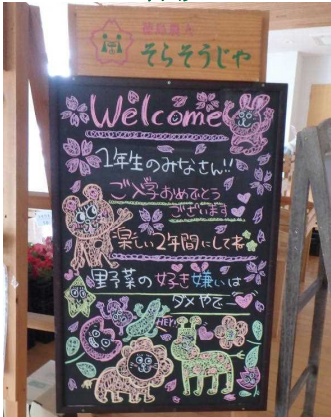 そらそうじゃ
Welcome
1年生のみなさん!!
ご入学おめでとう
ございます
楽しい2年間にしてね
野菜の好き嫌いは
ダメやでー
HEY!